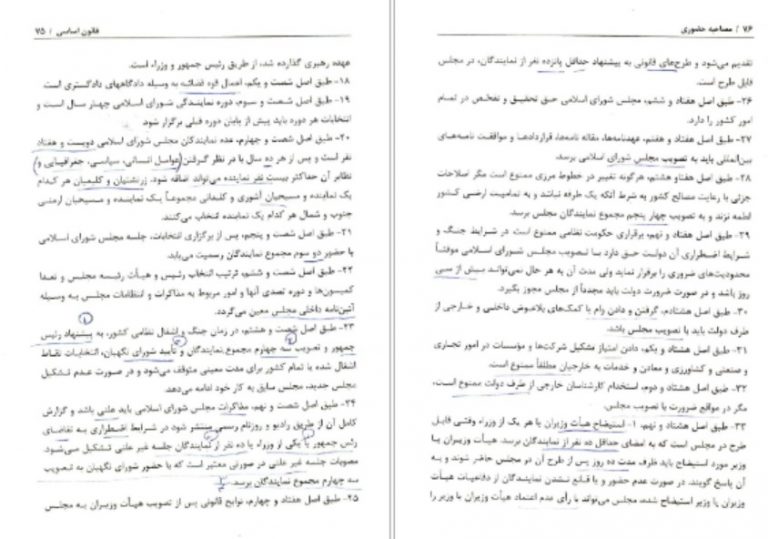 قانون اساسی / ۷۵
عهده رهبری گذارده شد، از طریق رئیس جمهور و وزراء است.
۱۸- طبق اصل شصت و یکم، اعمال قوه قضائیه به وسیله دادگاههای دادگستری است
۱۹- طبق اصل شصت و سوم، دوره نمایندگی شورای اسلامی چهار سال است و
انتخابات هر دوره باید پیش از پایان دوره قبلی برگزار شود.
۲۰- طبق اصل شصت و چهارم، عده نمایندگان مجلس شورای اسلامی دویست و هفتاد
نفر است و پس از هر ده سال با در نظر گرفتن (عوامل انسانی، سیاسی، جغرافیایی و)
نظایر آن حداکثر بیست نفر نماینده می‌تواند اضافه شود. زرتشتیان و کلیمیان هر کدام
یک نماینده و مسیحیان آشوری و کلدانی مجموعاً یک نماینده و مسیحیان ارمنی
جنوب و شمال هر کدام یک نماینده انتخاب می‌کنند.
۲۱- طبق اصل شصت و پنجم، پس از برگزاری انتخابات، جلسه مجلس شورای اسلامی
با حضور دو سوم مجموع نمایندگان رسمیت می‌یابد.
۲۲- طبق اصل شصت و ششم، ترتیب انتخاب رئیس و هیأت رئیسه مجلس و تعداد
کمیسیون‌ها و دوره تصدی آنها و امور مربوط به مذاکرات و انتظامات مجلس به وسیله
آئین‌نامه داخلی مجلس معین می‌گردد.
۲۳- طبق اصل شصت و هشتم، در زمان جنگ و اشغال نظامی کشور، به پیشنهاد رئیس
جمهور و تصویب سه چهارم مجموع نمایندگان و تأیید شورای نگهبان، انتخابات نقاط
اشغال شده یا تمام کشور برای مدت معینی متوقف می‌شود و در صورت عدم تشکیل
مجلس جدید، مجلس سابق به کار خود ادامه می‌دهد.
۲۴- طبق اصل شصت و نهم، مذاکرات مجلس شورای اسلامی باید علنی باشد و گزارش
کامل آن از طریق رادیو و روزنام رسمی منتشر شود در شرایط اضطراری به تقاضای
رئس جمهور یا یکی از وزراء یا ده نفر از نمایندگان جلسه غیر علنی تشکیل می‌شود.
مصوبات جلسه غیر علنی در صورتی معتبر است که با حضور شورای نگهبان به تصویب
سه چهارم مجموع نمایندگان برسد.
۲۵- طبق اصل هفتاد و چهارم، لوایح قانونی پس از تصویب هیأت وزیران به مجلس
۷۶ / مصاحبه حضوری
تقدیم می‌شود و طرح‌های قانونی به پیشنهاد حداقل پانزده نفر از نمایندگان، در مجلس
قابل طرح است.
۲۶- طبق اصل هفتاد و ششم، مجلس شورای اسلامی حق تحقیق و تفحص در تمام
امور کشور را دارد.
۲۷- طبق اصل هفتاد و هفتم، عهدنامه‌ها، مقاله نامه‌ها، قراردادها و موافقت نامه‌های
بین‌المللی باید به تصویب مجلس شورای اسلامی برسد.
۲۸- طبق اصل هفتاد و هشتم، هرگونه تغییر در خطوط مرزی ممنوع است مگر اصلاحات
جزئی با رعایت مصالح کشور به شرط آنکه یک طرفه نباشد و به تمامیت ارضی کشور
لطمه نزند و به تصویب چهار پنجم مجموع نمایندگان مجلس برسد.
۲۹- طبق اصل هفتاد و نهم، برقراری حکومت نظامی ممنوع است در شرایط جنگ و
شرایط اضطراری آن دولت حق دارد با تصویب مجلس شورای اسلامی موقتاً
محدودیت‌های ضروری را برقرار نماید ولی مدت آن به هر حال نمی‌تواند بیش از سی
روز باشد و در صورت ضرورت دولت باید مجدداً از مجلس مجوز بگیرد.
۳۰- طبق اصل هشتادم، گرفتن و دادن وام یا کمک‌های بلاعوض داخلی و خارجی از
طرف دولت باید با تصویب مجلس باشد.
۳۱- طبق اصل هشتاد و یکم، دادن امتیاز تشکیل شرکت‌ها و مؤسسات در امور تجاری
و صنعتی و کشاورزی و معادن و خدمات به خارجیان مطلقاً ممنوع است.
۳۲- طبق اصل هشتاد و دوم، استخدام کارشناسان خارجی از طرف دولت ممنوع است،
مگر در مواقع ضرورت با تصویب مجلس.
۳۳- طبق اصل هشتاد و نهم، ۱- استیضاح هیأت وزیران یا هر یک از وزراء وقتی قابل
طرح در مجلس است که به امضای حداقل ده نفر از نمایندگان برسد. هیأت وزیران یا
وزیر مورد استیضاح باید ظرف مدت ده روز پس از طرح آن در مجلس حاضر شوند و به
آن پاسخ گویند. در صورت عدم حضور و یا قانع نشدن نمایندگان از دفاعیات هیأت
وزیران یا وزیر استیضاح شده، مجلس می‌تواند با رأی عدم اعتماد هیأت وزیران با وزیر را